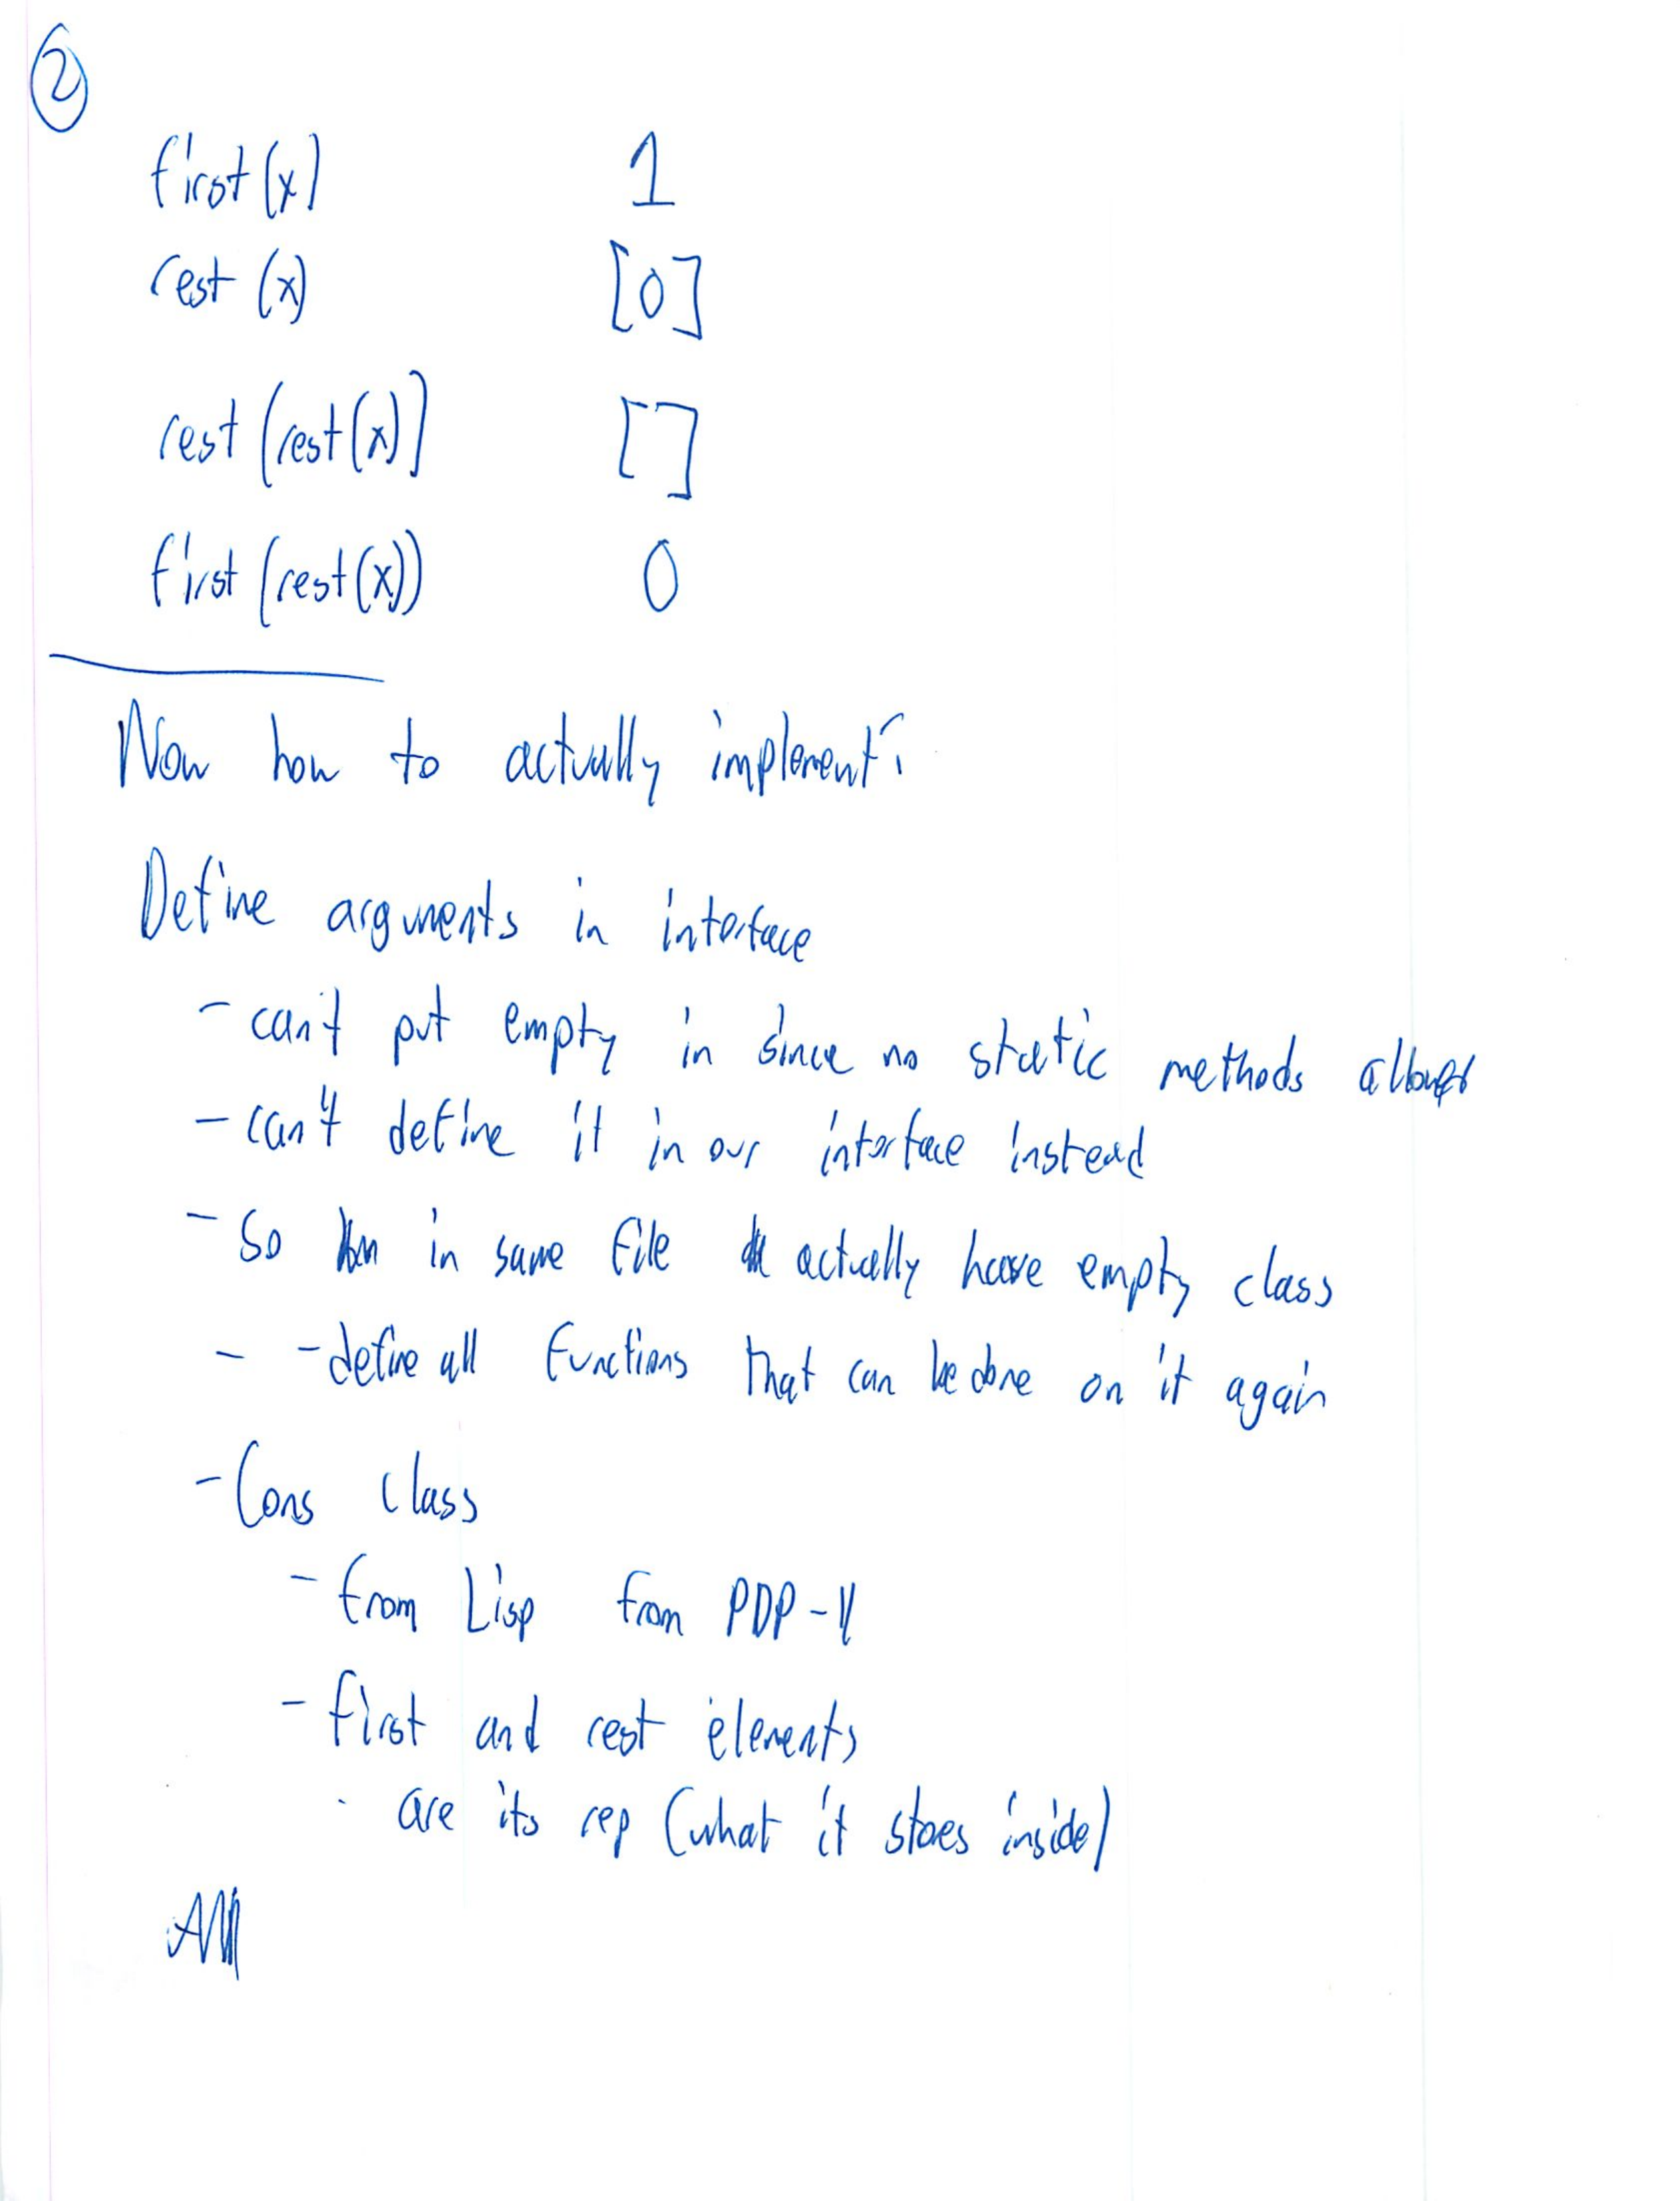 2
first(x) 1
rest (x) [0]
rest (rest(x)) []
first (rest(x)) 0
Now how to actually implement?
Define arguments in interface
- can't put empty in since no static methods allowed
- can't define it in our interface instead
- So in same file actually have empty class
- - define all functions that can be done on it again
- Cons class
- from Lisp from PDP-11
- first and rest elements
· are its rep (what it stores inside)
All